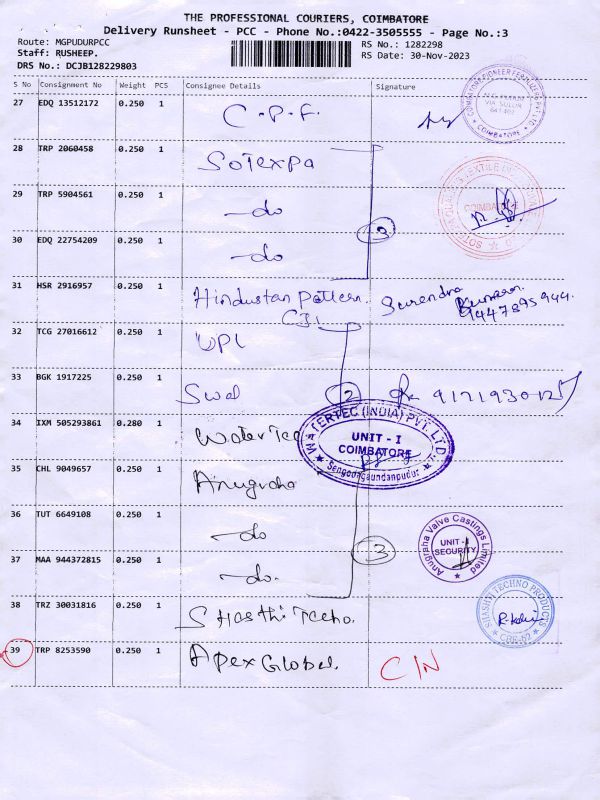 THE PROFESSIONAL COURIERS, COIMBATORE
Delivery Runsheet - PCC - Phone No.:0422-3505555 - Page No.:3
Route: MGPUDURPCC RS No.: 1282298
Staff: RUSHEEP. RS Date: 30-Nov-2023
DRS No.: DCJB128229803
S No Consignment No Weight PCS Consignee Details Signature
27 EDQ 13512172 0.250 1 C.P.F.
COIMBATORE PIONEER FERTILIZERS PVT LTD
VIA SULUR
641402
COIMBATORE
28 TRP 2060458 0.250 1 Sotexpa
29 TRP 5904561 0.250 1 -do
30 EDQ 22754209 0.250 1 -do
3
COIMBATORE
31 HSR 2916957 0.250 1 Hindustan Pattern. Surendra Kumaran.
9447895944.
32 TCG 27016612 0.250 1 UPL
33 BGK 1917225 0.250 1 Swal 2
34 IXM 505293861 0.280 1 Water Tec
WATERTEC (INDIA) PVT. LTD.
UNIT - I
COIMBATORE
Sengodagaundanpudur
35 CHL 9049657 0.250 1 Anugraha
36 TUT 6649108 0.250 1 -do
37 MAA 944372815 0.250 1 -do.
3
Anugraha Valve Castings Limited
UNIT - I
SECURITY
38 TRZ 30031816 0.250 1 Shasthi Techo.
SHASHTI TECHNO PRODUCTS
CBE-62
39 TRP 8253590 0.250 1 Apex Global. C/N